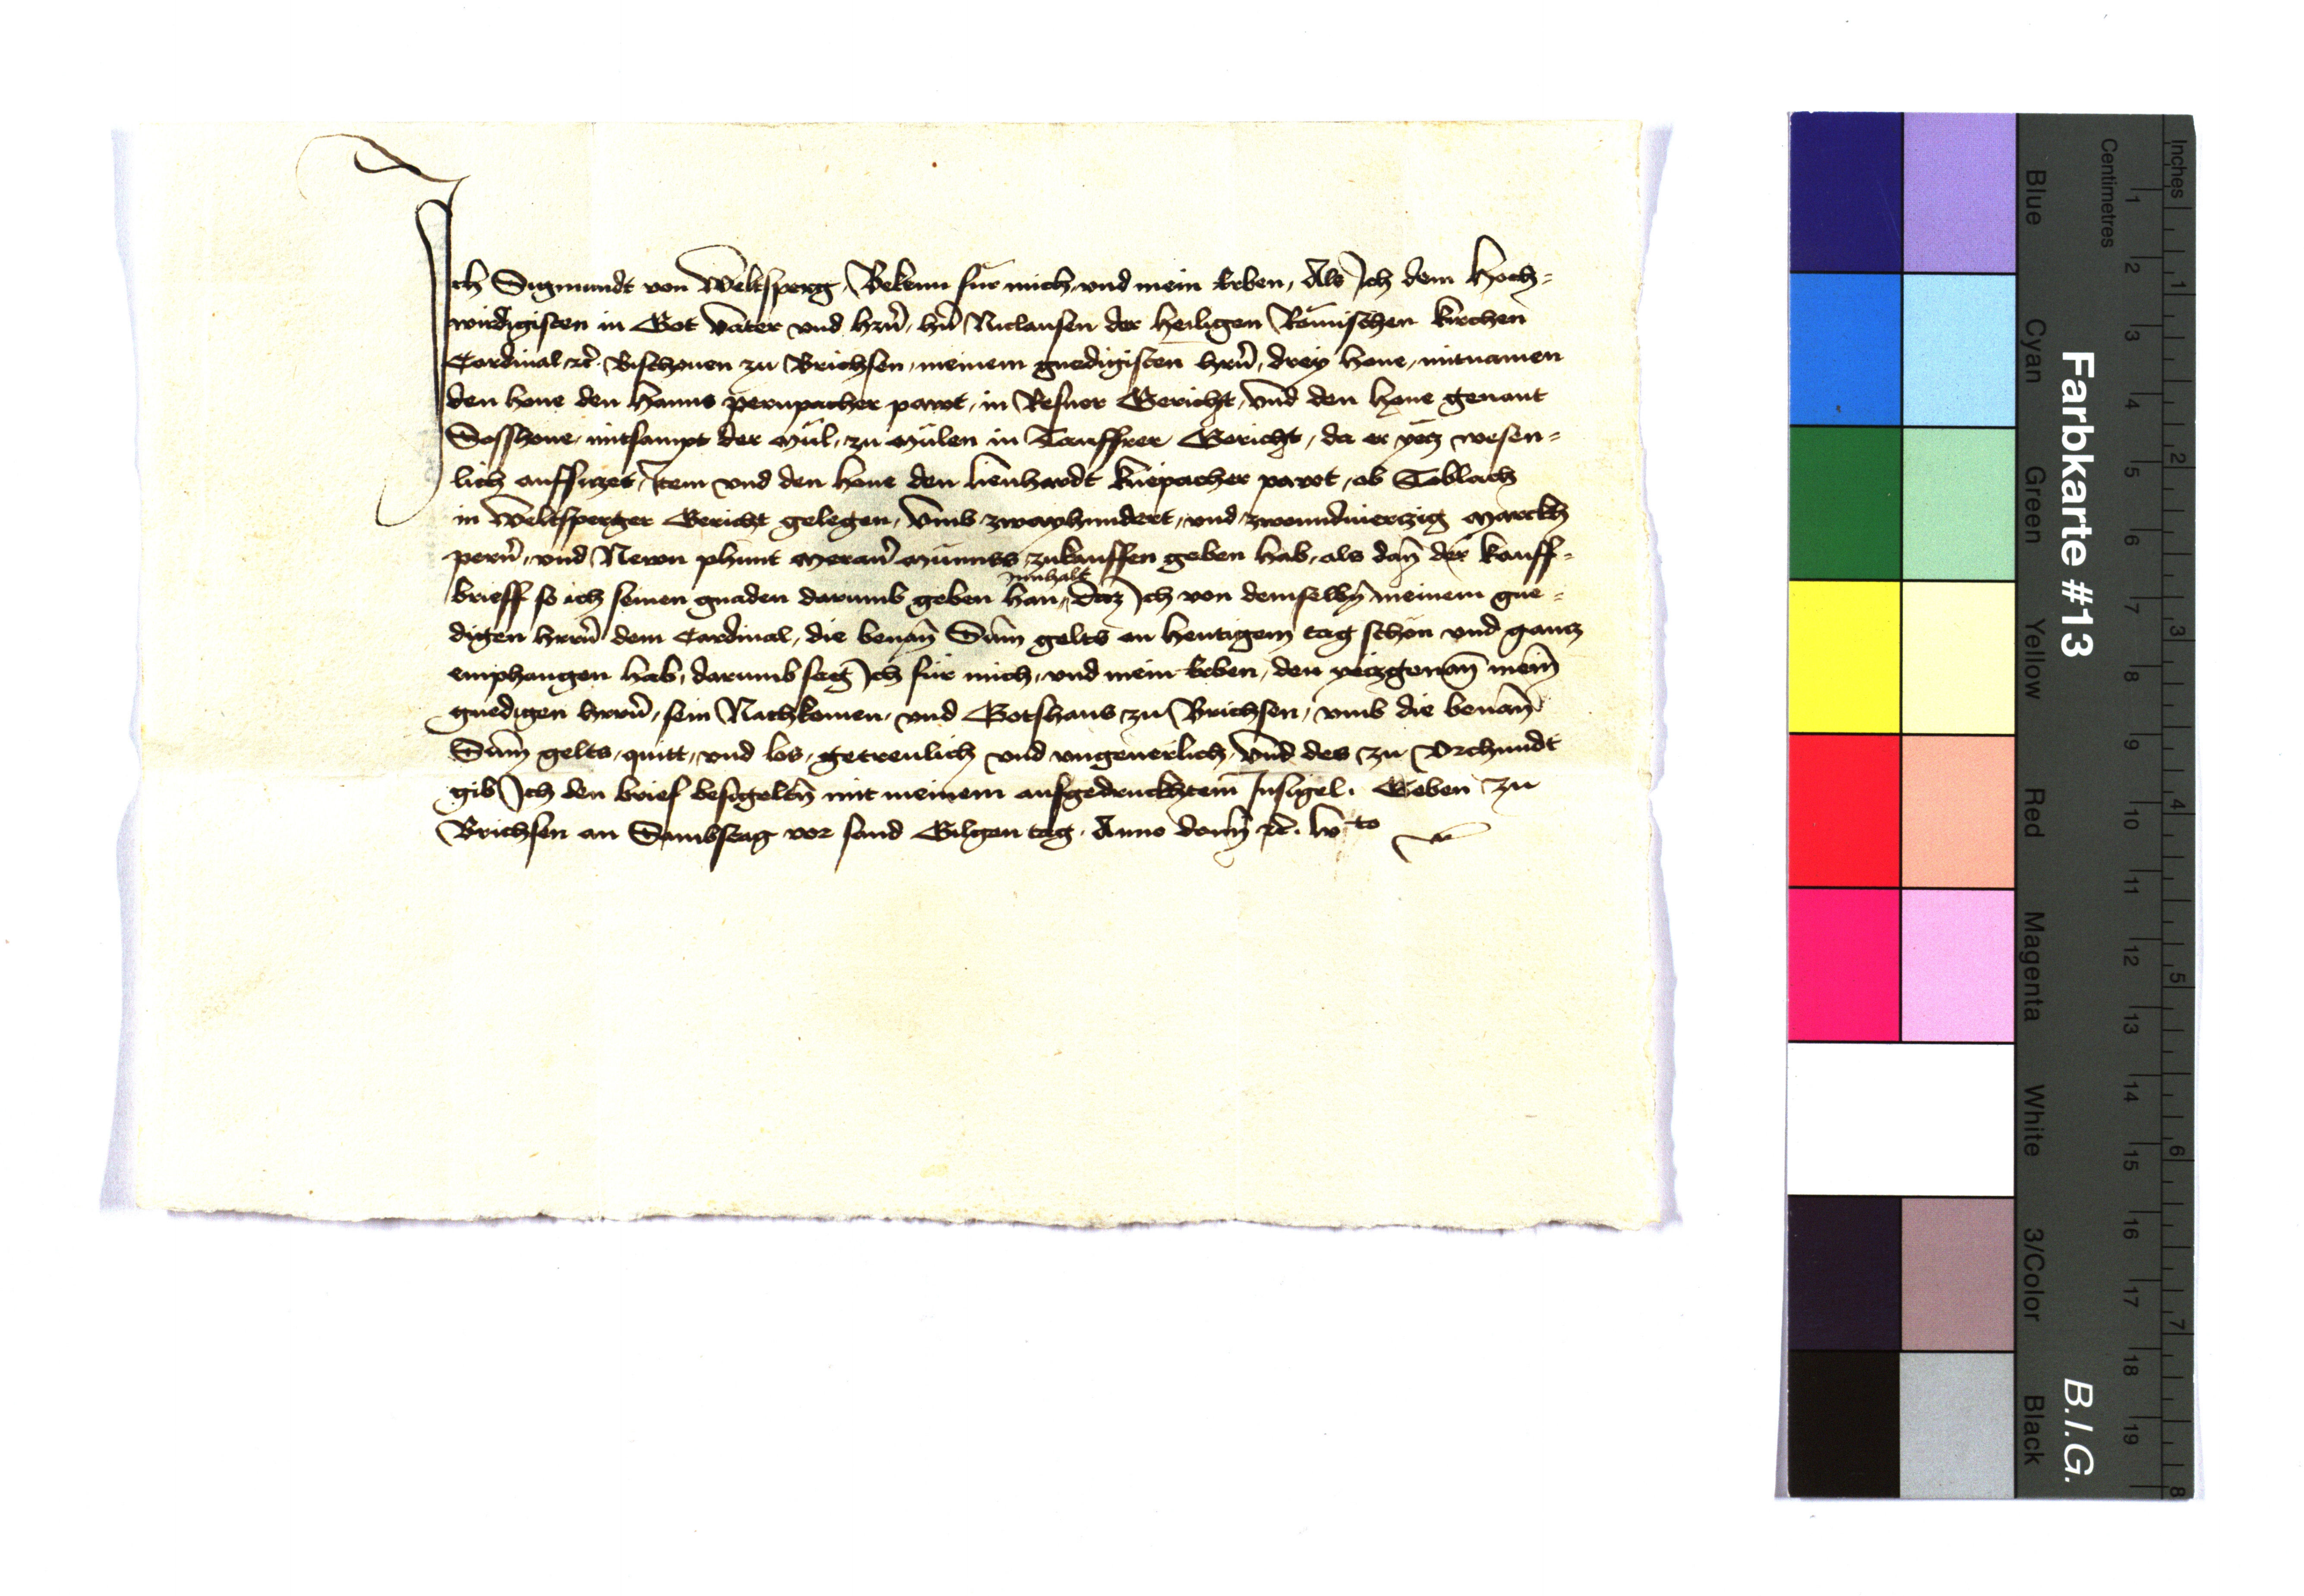 Ich Sigmundt von Weltsperg, Bekenn für mich, vnd mein Erben, Als Ich dem Hoch=
wirdigisten in Got Vater vnd hrñ, hñ Niclausen der heiligen Römischen kirchen
Cardinal, ꝛc̃. Bischouen zu Brichsen, meinem gnedigisten hrñ, drey houe, mitnamen
den houe den Hanns pernpacher pawt, in Gericht, vnd den houe genant
mitsampt der Mül, zu Mülen in Tauffrer Gericht, da er yetz wesen=
lich auffsitzet, Item vnd den houe den lienhardt kuepacher pawt, ob Toblach
in Weltsperger Gericht gelegen, Vmb zwayhundert, vnd zwenundviertzig Marckh
perñ, vnd Newn phunt Merañ Münnss, zukauffen geben hab, als dañ der kauff=
innhalt
brieff so ich seinen gnaden darumb geben han, Daz Ich von demselbñ meinem gne=
digen hrrñ dem Cardinal, die benañ Sum̃ gelts an heutigem tag schon vnd gantz
emphangen hab, darumb sag Ich für mich, vnd mein Erben, den yetzgenañ meiñ
gnedigen hrrñ, sein Nachkomen, vnd Gotshaus zu Brichsen, vmb die benañ
Sum̃ gelts, quitt, vnd los, getreulich vnd vngeuerlich, Vnd des zu Vrchundt
gib Ich den brief besigeltñ mit meinem aufgedruckhtem Insigel. Geben zu
Brichsen an Sambstag vor sand Gilgen tag. Anno domĩ ꝛc̃. lvto
Farbkarte #13
B.I.G.
Blue Cyan Green Yellow Red Magenta White 3/Color Black
Centimetres
1 2 3 4 5 6 7 8 9 10 11 12 13 14 15 16 17 18 19
Inches
1 2 3 4 5 6 7 8